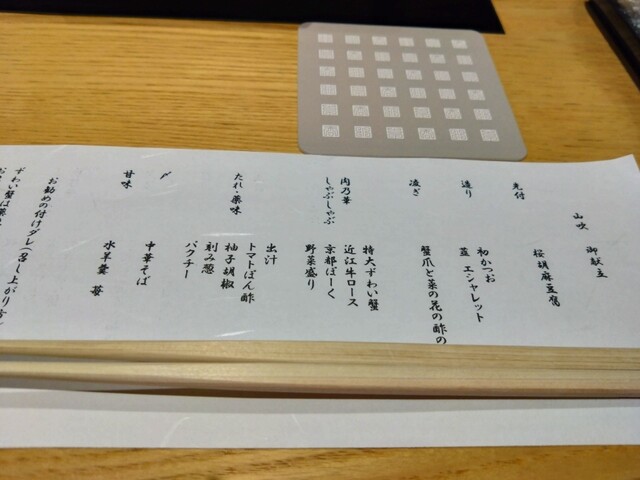 山吹 御献立
先付
桜胡麻豆腐
造り
初かつお
蕗 エシャレット
凌ぎ
蟹爪と菜の花の酢の
肉乃華
しゃぶしゃぶ
特大ずわい蟹
近江牛ロース
京都ぽーく
野菜盛り
たれ・薬味
出汁
トマトぽん酢
柚子胡椒
刻み葱
パクチー
〆
中華そば
甘味
水羊羹 苺
お勧めの付けダレ(召し上がり方)
ずわい蟹は薬